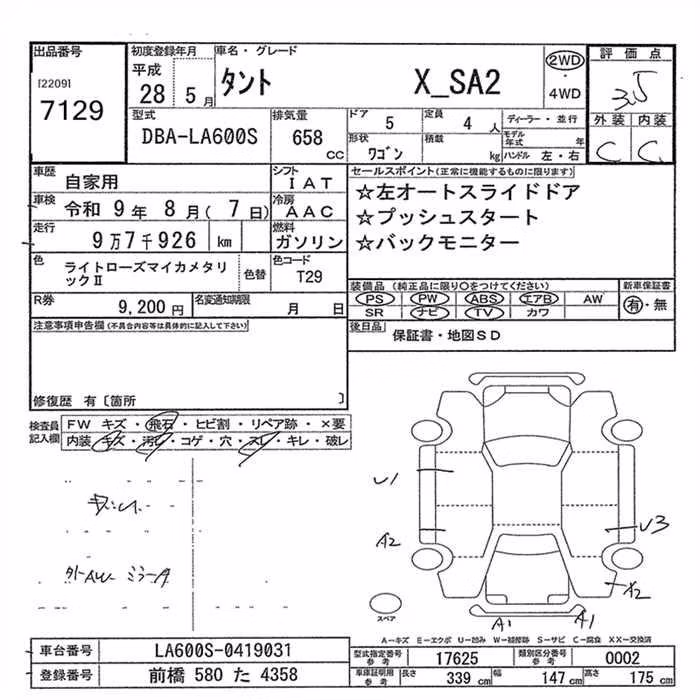 出品番号
[22091
7129
初度登録年月
平成
28 5月
車名・グレード
タント X_SA2
2WD
・
4WD
評価点
3.5
外装 内装
C C
型式
DBA-LA600S
排気量
658
CC
ドア 5
定員 4 人
形状 ワゴン
積載 kg
ディーラー・並行
モデル年式 年
ハンドル 左・右
車歴 自家用
シフト IAT
車検 令和 9年 8月( 7日)
冷房 AAC
走行 9万7千926 km
燃料 ガソリン
色 ライトローズマイカメタリックⅡ
色替
色コード T29
R券 9,200円
名変通知期限 月 日
セールスポイント(正常に機能するものに限ります)
☆左オートスライドドア
☆プッシュスタート
☆バックモニター
装備品 (純正品に限り〇をつけてください)
新車保証書
PS PW ABS エアB AW
SR ナビ TV カワ
有・無
後日品
保証書・地図SD
注意事項申告欄(不具合内容等は具体的に記入して下さい)
修復歴 有〔箇所 〕
検査員記入欄
FW キズ・飛石・ヒビ割・リペア跡・×要
内装 キズ・汚レ・コゲ・穴・スレ・キレ・破レ
U1
A2
U3
A2
外AW ミラーA
スペア
A1 A1
A-キズ E-エクボ U-凹み W-補修跡 S-サビ C-腐食 XX-交換済
車台番号 LA600S-0419031
登録番号 前橋 580 た 4358
型式指定番号参考 17625
類別区分番号参考 0002
車庫証明用参考
長さ 339 cm
幅 147 cm
高さ 175 cm